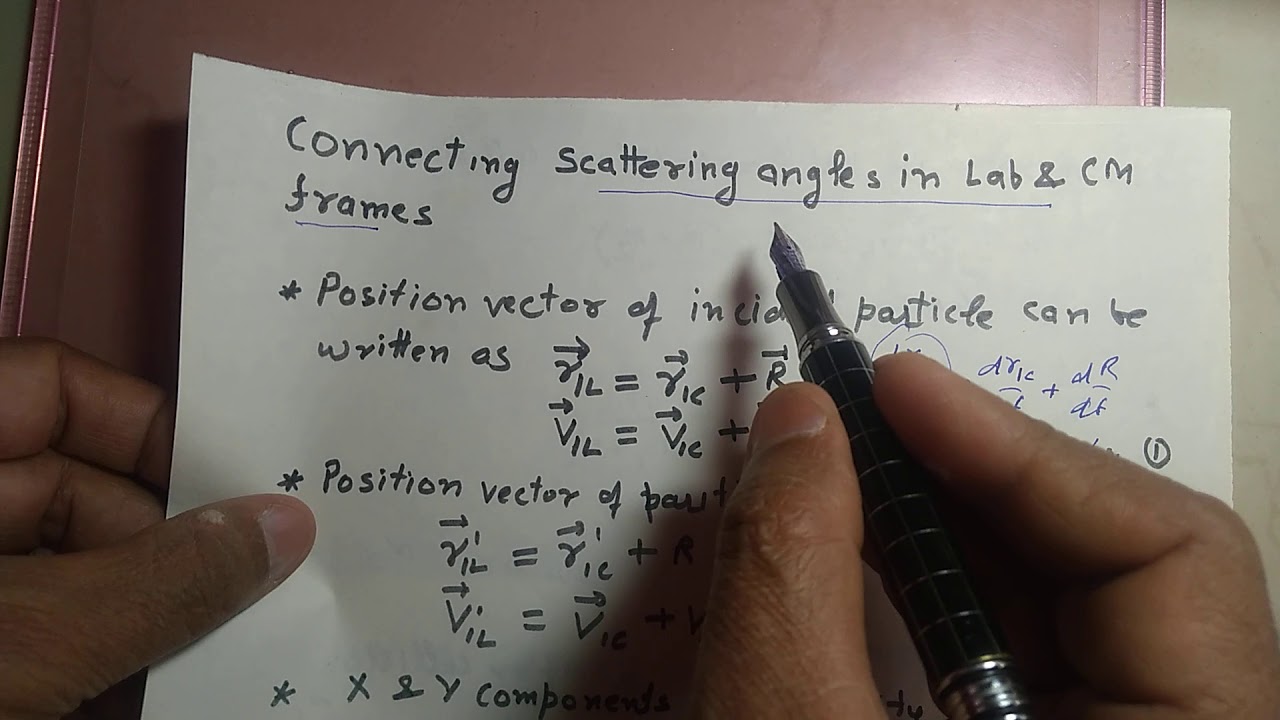 Connecting Scattering angles in Lab & CM
frames
* Position vector of incid particle can be
written as r⃗₁L = r⃗₁C + R⃗ dr₁C + dR/dt
V⃗₁L = V⃗₁C + ①
* Position vector of
r⃗'₁L = r⃗'₁C + R
V⃗'₁L = V⃗₁C + V
* X & Y Components